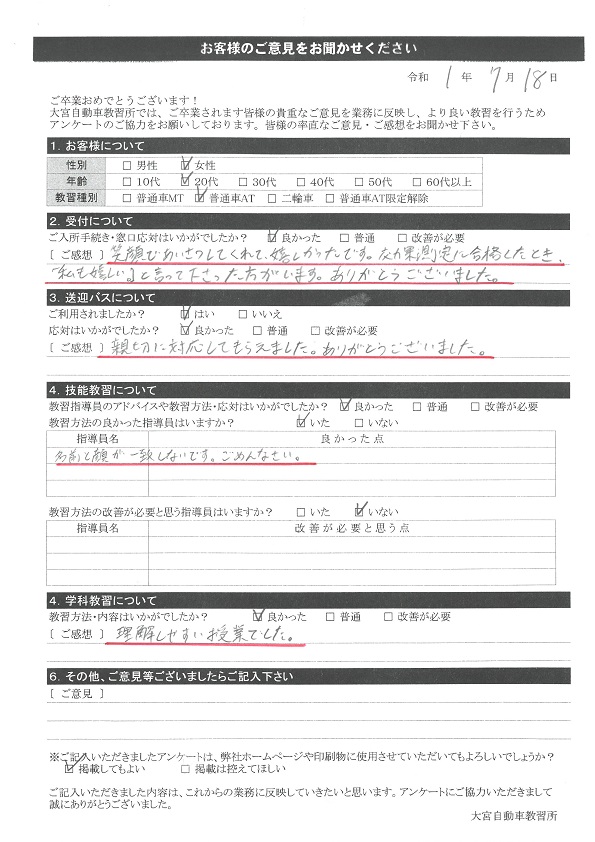 お客様のご意見をお聞かせください
令和 1 年 7 月 18 日
ご卒業おめでとうございます！
大宮自動車教習所では、ご卒業されます皆様の貴重なご意見を業務に反映し、より良い教習を行うため
アンケートのご協力をお願いしております。皆様の率直なご意見・ご感想をお聞かせ下さい。
1. お客様について
性別 □ 男性 ☑ 女性
年齢 □ 10代 ☑ 20代 □ 30代 □ 40代 □ 50代 □ 60代以上
教習種別 □ 普通車MT ☑ 普通車AT □ 二輪車 □ 普通車AT限定解除
2. 受付について
ご入所手続き・窓口応対はいかがでしたか？ ☑ 良かった □ 普通 □ 改善が必要
[ ご感想 ] 笑顔であいさつしてくれて、嬉しかったです。効果測定に合格したとき、
「私も嬉しい」と言って下さった方がいます。ありがとうございました。
3. 送迎バスについて
ご利用されましたか？ ☑ はい □ いいえ
応対はいかがでしたか？ ☑ 良かった □ 普通 □ 改善が必要
[ ご感想 ] 親切に対応してもらえました。ありがとうございました。
4. 技能教習について
教習指導員のアドバイスや教習方法・応対はいかがでしたか？ ☑ 良かった □ 普通 □ 改善が必要
教習方法の良かった指導員はいますか？ ☑ いた □ いない
指導員名 良かった点
名前と顔が一致しないです。ごめんなさい。
教習方法の改善が必要と思う指導員はいますか？ □ いた ☑ いない
指導員名 改善が必要と思う点
4. 学科教習について
教習方法・内容はいかがでしたか？ ☑ 良かった □ 普通 □ 改善が必要
[ ご感想 ] 理解しやすい授業でした。
6. その他、ご意見等ございましたらご記入下さい
[ ご意見 ]
※ご記入いただきましたアンケートは、弊社ホームページや印刷物に使用させていただいてもよろしいでしょうか？
☑ 掲載してもよい □ 掲載は控えてほしい
ご記入いただきました内容は、これからの業務に反映していきたいと思います。アンケートにご協力いただきまして
誠にありがとうございました。
大宮自動車教習所